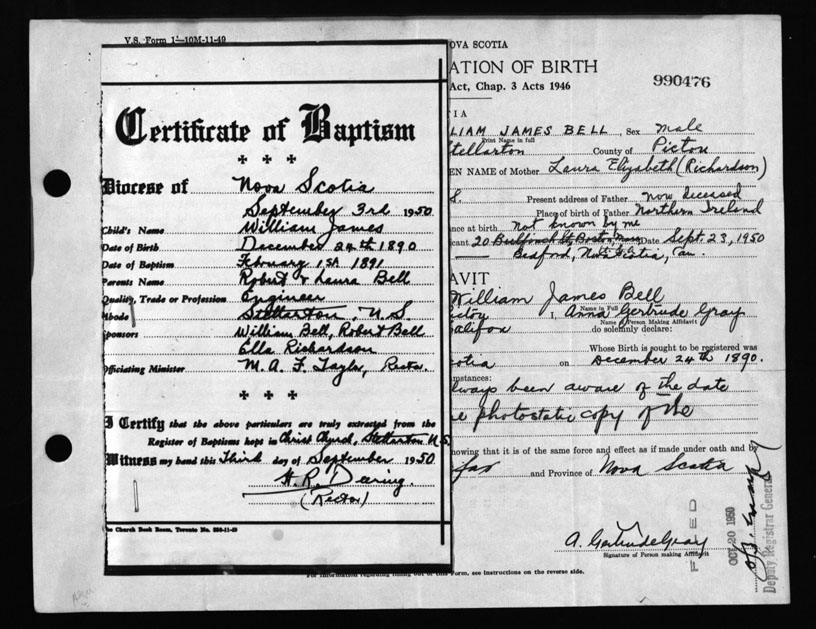 V.S. Form 1—10M-11-49
Certificate of Baptism
Diocese of Nova Scotia
September 3rd 1950
Child's Name William James
Date of Birth December 24th 1890
Date of Baptism February 1st 1891
Parents Name Robert & Laura Bell
Quality, Trade or Profession Engineer
Abode Stellarton, N.S.
Sponsors William Bell, Robert Bell
Ella Richardson
Officiating Minister M. A. F. Taylor, Rector.
I Certify that the above particulars are truly extracted from the
Register of Baptisms kept in Christ Church, Stellarton N.S.
Witness my hand this Third day of September 1950
H. R. Deering.
(Rector)
The Church Book Room, Toronto No. 286-11-49
OVA SCOTIA
ATION OF BIRTH
Act, Chap. 3 Acts 1946
990476
TIA
LIAM JAMES BELL, Sex Male
Print Name in full
Stellarton County of Pictou
EN NAME of Mother Laura Elizabeth (Richardson)
Present address of Father now deceased
Place of birth of Father Northern Ireland
ance at birth not known by me
icant 20 Bulfinch St, Boston, Mass Date Sept. 23, 1950
Bedford, Nova Scotia, Can.
AVIT
William James Bell
Name in Full
ictou I, Anna Gertrude Gray
Name of Person Making Affidavit
alifax do solemnly declare:
Whose Birth is sought to be registered was
cotia on December 24th 1890.
mstances:
lways been aware of the date
e photostatic copy of the
nowing that it is of the same force and effect as if made under oath and by
fax and Province of Nova Scotia
A. Gertrude Gray
Signature of Person making Affidavit
FILED
OCT 20 1950
Deputy Registrar General
For information regarding filling out of this Form, see instructions on the reverse side.